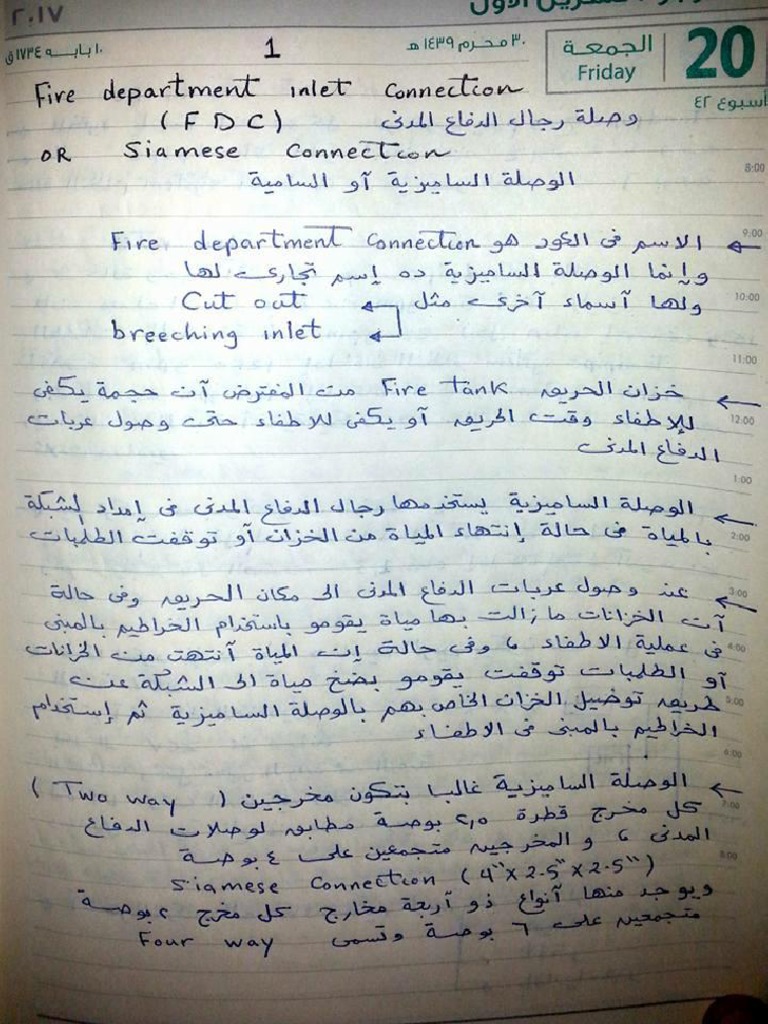 ٢٠١٧
تشرين الأول
٣٠ محرم ١٤٣٩ هـ
١٠ بابه ١٧٣٤ ق
1
الجمعة
Friday
20
أسبوع ٤٢
Fire department inlet Connection
وصلة رجال الدفاع المدنى (FDC)
OR Siamese Connection
الوصلة الساميزية أو السامية
8:00
9:00
← الاسم فى الكود هو Fire department Connection
وإنما الوصلة الساميزية ده إسم تجارى لها
10:00
ولها آسماء آخرى مثل Cut out
breeching inlet
11:00
← خزان الحريق Fire tank من المفترض آن حجمة يكفى
12:00
للإطفاء وقت الحريق آو يكفى للاطفاء حتى وصول عربات
الدفاع المدنى
1:00
← الوصلة الساميزية يستخدمها رجال الدفاع المدنى فى إمداد الشبكة
2:00
بالمياة فى حالة إنتهاء المياة من الخزان آو توقفت الطلمبات
3:00
← عند وصول عربات الدفاع المدنى الى مكان الحريق وفى حالة
آن الخزانات مازالت بها مياة يقومو باستخدام الخراطيم بالمبنى
4:00
فى عملية الاطفاء ، وفى حالة إن المياة آنتهت من الخزانات
آو الطلمبات توقفت يقومو بضخ مياة الى الشبكة عن
5:00
طريق توصيل الخزان الخاص بهم بالوصلة الساميزية ثم إستخدام
الخراطيم بالمبنى فى الاطفاء
6:00
← الوصلة الساميزية غالبا بتكون مخرجين (Two way)
7:00
كل مخرج قطرة ٢,٥ بوصة مطابق لوصلات الدفاع
المدنى ، و المخرجين متجمعين على ٤ بوصة
8:00
Siamese Connection (4"X2.5"X2.5")
ويوجد منها آنواع ذو آربعة مخارج كل مخرج ٢ بوصة
متجمعين على ٦ بوصة وتسمى Four way